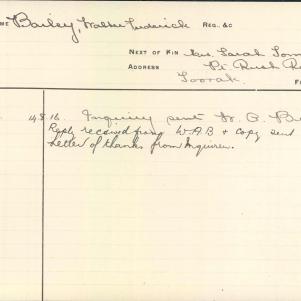 ME Bailey, Walter Frederick REG. &C
NEXT OF KIN Mrs. Sarah
ADDRESS Rush
Toorak.
4.8.16. Inquiry sent W. A.
Reply received from W.A.B & copy sent
Letter of thanks from Inquirer.